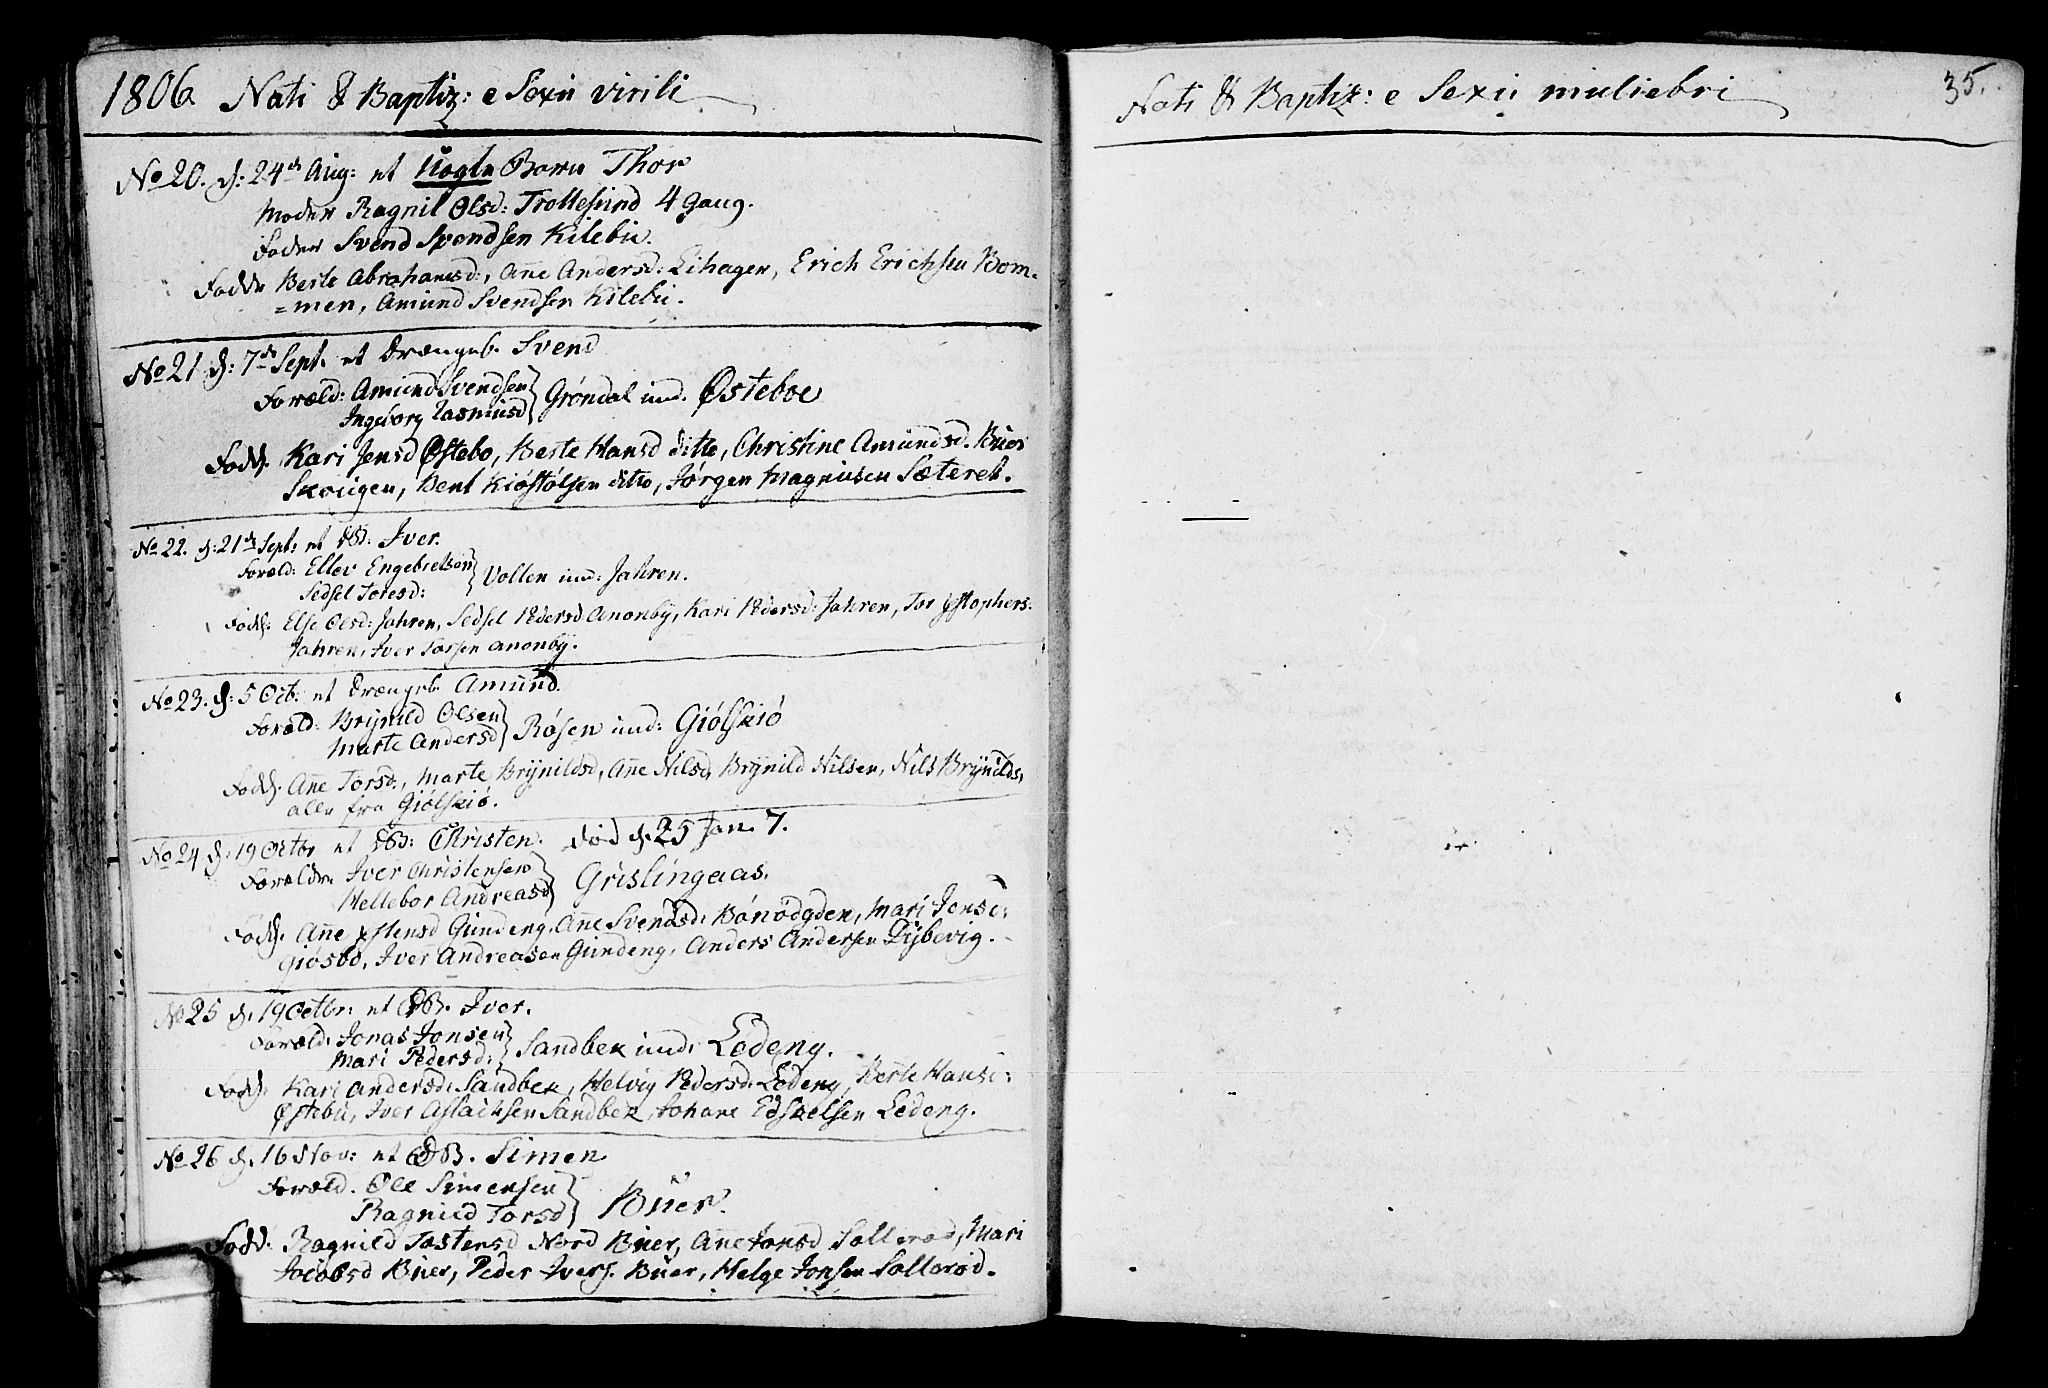 1806 Nati & Baptiz: e Sexu virili
No 20. d: 24de Aug: et Uægte Barn Thor
Moder Ragnil Olsd: Trollesund 4 gang.
Fader Svend Svendsen Kilebu.
Fadd: Berte Abrahamsd:, Añe Andersd: Lihagen, Erich Erichsen Bom=
=men, Amund Svendsen Kilebu.
No 21 d: 7de Sept. et Drængeb. Svend
Foræld: Amund Svendsen
Ingeborg Rasmusd } Grøndal und. Østeboe
Fadd. Kari Jensd Østebo, Berte Hansd ditto, Christine Amundsd. Buer
Skougen, Bent Kiøstølsen ditto, Jørgen Magnusen Sæteret.
No 22. d: 21de Sept: et DB: Iver.
Foræld: Ellev Engebretsen
Sedsel Toresd: } Vollen und: Jahren.
Fadd. Else Olsd: Jahren, Sedsel Pedersd Anonby, Kari Pedersd: Jahren, Tor Xstophers:
Jahren, Iver Torsen Anonby.
No 23. d: 5 Octb: et Drængeb. Amund.
Foræld: Brynild Olsen
Marte Andersd } Røsen und: Giølsiø
Fadd. Añe Torsd., Marte Brynildsd, Añe Nilsd, Brynild Nilsen, Nils Brynilds,
alle fra Giølsiø.
No 24 d: 19 Octbr et DB: Christen. Fød d. 25 Jan. 7.
Forældre Iver Christensen
Hellebor Andreasd } Grislingaas.
Fadd. Añe Xstensd Gundeng, Añe Svendsd: Bonødgden, Mari Jensd:
Giøsbo, Iver Andreasen Gundeng, Anders Andersen Dybevig.
No 25 d. 19 Octbr: et DB. Iver.
Foræld: Jonas Jonsen
Mari Pedersd: } Sandbek und: Lødeng.
Fadd. Kari Andersd: Sandbek, Helvig Pedersd: Lødeng, Berte Hansd:
Østebu, Iver Aslachsen Sandbek, Johane Edskelsen Lødeng.
No 26 d. 16 Nov: et DB. Simen
Foræld. Ole Simensen
Ragnild Torsd } Buer.
Fadd. Ragnild Tostensd Nord Buer, Añe Jonsd Sollerød, Mari
Jacobsd Buer, Peder Ivers. Buer, Helge Jonsen Sollerød.
Nati & Baptiz: e Sexu muliebri
35.